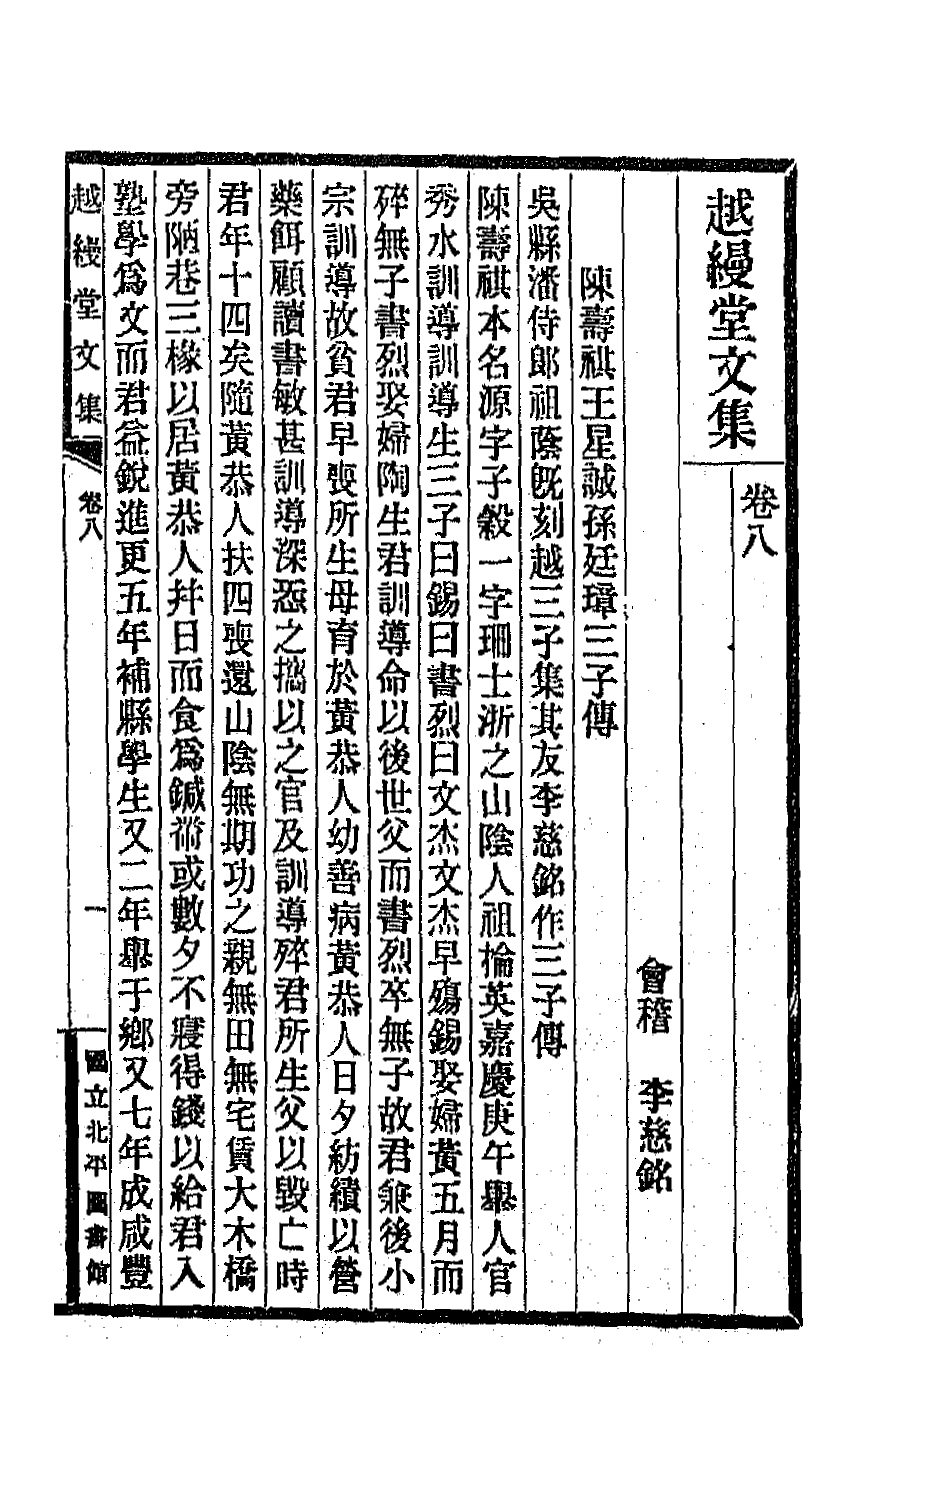 越縵堂文集
卷八
會稽 李慈銘
陳壽祺王星諴孫廷璋三子傳
吳縣潘侍郎祖蔭旣刻越三子集其友李慈銘作三子傳
陳壽祺本名源字子穀一字珊士浙之山陰人祖掄英嘉慶庚午舉人官
秀水訓導訓導生三子曰錫曰書烈曰文杰文杰早殤錫娶婦黃五月而
殍無子書烈娶婦陶生君訓導命以後世父而書烈卒無子故君兼後小
宗訓導故貧君早喪所生母育於黃恭人幼善病黃恭人日夕紡績以營
藥餌顧讀書敏甚訓導深愛之攜以之官及訓導殍君所生父以毀亡時
君年十四矣隨黃恭人扶四喪還山陰無期功之親無田無宅賃大木橋
旁陋巷三椽以居黃恭人幷日而食爲鍼黹或數夕不寢得錢以給君入
塾學爲文而君益銳進更五年補縣學生又二年舉于鄉又七年成咸豐
越縵堂文集
卷八
一
國立北平圖書館